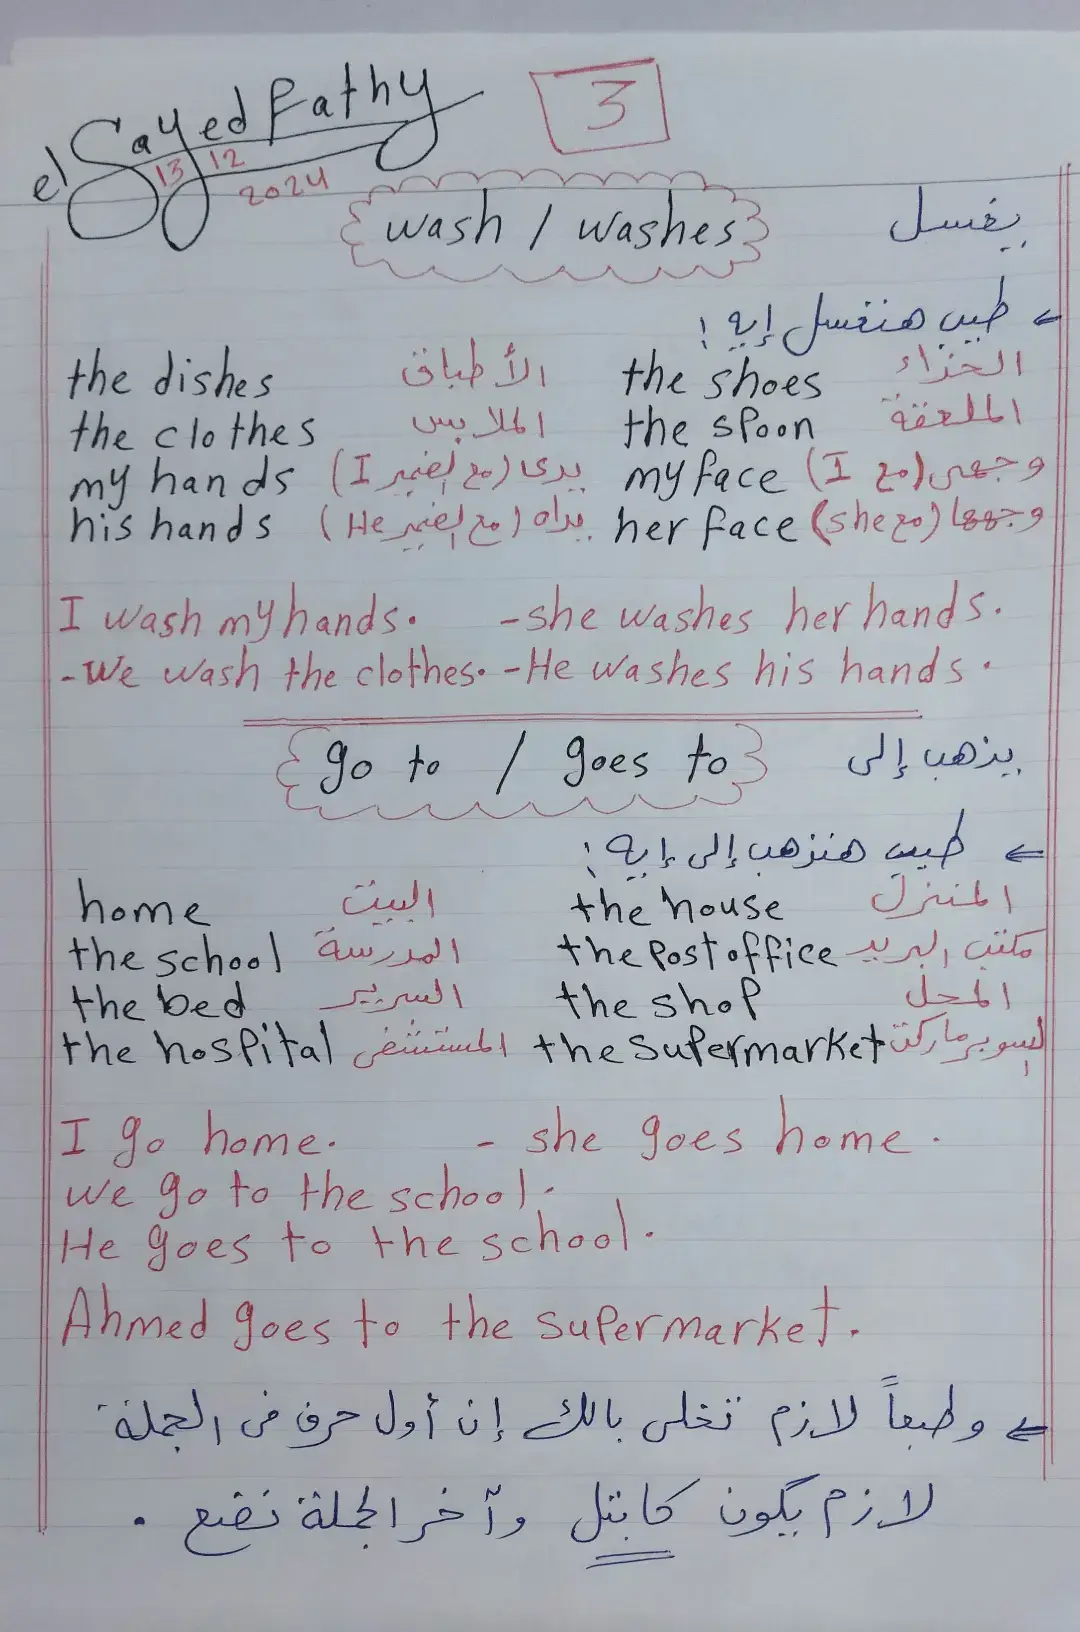 el Sayed Fathy
13 12 2024
3
wash / washes يغسل
طيب هنغسل إيه ؟
the dishes الأطباق the shoes الحذاء
the clothes الملابس the spoon الملعقة
my hands يدى (مع الضمير I) my face وجهى (مع I)
his hands يداه (مع الضمير He) her face وجهها (مع she)
I wash my hands. - she washes her hands.
- We wash the clothes. - He washes his hands.
go to / goes to يذهب إلى
طيب هنذهب إلى إيه ؟
home البيت the house المنزل
the school المدرسة the Post office مكتب البريد
the bed السرير the shop المحل
the hospital المستشفى the supermarket السوبر ماركت
I go home. - she goes home.
we go to the school.
He goes to the school.
Ahmed goes to the supermarket.
وطبعاً لازم تخلى بالك إن أول حرف فى الجملة
لازم يكون كابتل وآخر الجملة نضع .